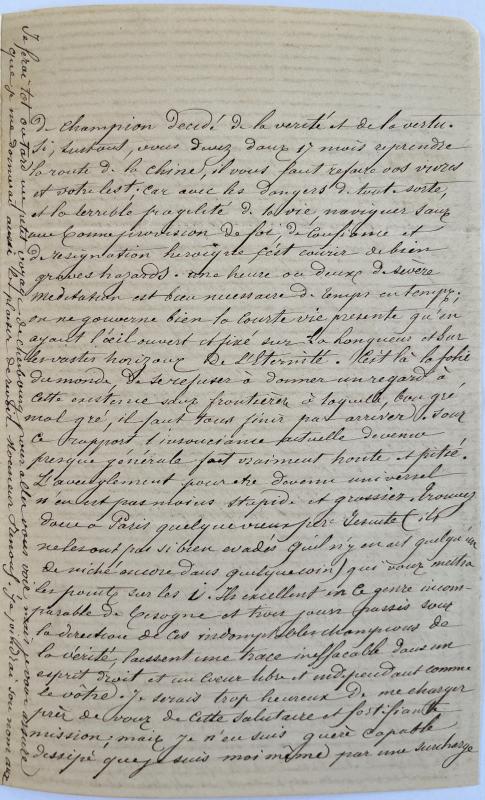 de champion decidé de la verité et de la vertu.
Si, surtout, vous devez dans 17 mois reprendre
la route de la Chine, il vous faut refaire vos vivres
et votre lest. car avec les dangers de tout sorte,
et la terrible fragilité de la vie, naviguer sans
une bonne provision de foi, de confiance et
de resignation heroïque c'est courir de bien
graves hazards. une heure ou deux de sévère
meditation est bien necessaire de temps en temps.
on ne gouverne bien la courte vie presente qu'en
ayant l'œil ouvert et fixé sur la longueur et sur
les vastes horizons de l'Eternité. c'est là la folie
du monde, de se refuser à donner un regard à
cette existence sans frontières à laquelle, bon gré,
mal gré, il faut tous finir par arriver. sous
ce rapport l'insouciance actuelle devenue
presque générale fait vraiment honte et pitié.
L'aveuglement pour etre devenu universel
n'en est pas moins stupide et grossier. trouvez
donc à Paris quelque vieux père Jesuite (ils
ne les ont pas si bien evadés qu'il n'y en ait quelqu'un
de niché encore dans quelque coin) qui vous mettra
les points sur les i. Ils excellent in ce genre incom-
parable de besogne et trois jours passés sous
la direction de ces indomptables champions de
la verité, laissent une trace ineffaçable dans un
esprit droit et un cœur libre et independant comme
le votre. Je serais trop heureux de me charger
près de vous de cette salutaire et fortifiante
mission; mais je n'en suis guère capable
dissipé que je suis moi même par une surcharge
Je ferai tot ou tard un petit voyage de cherbourg, pour aller vous voir, mais
que je me donnerai aussi le plaisir de revoir